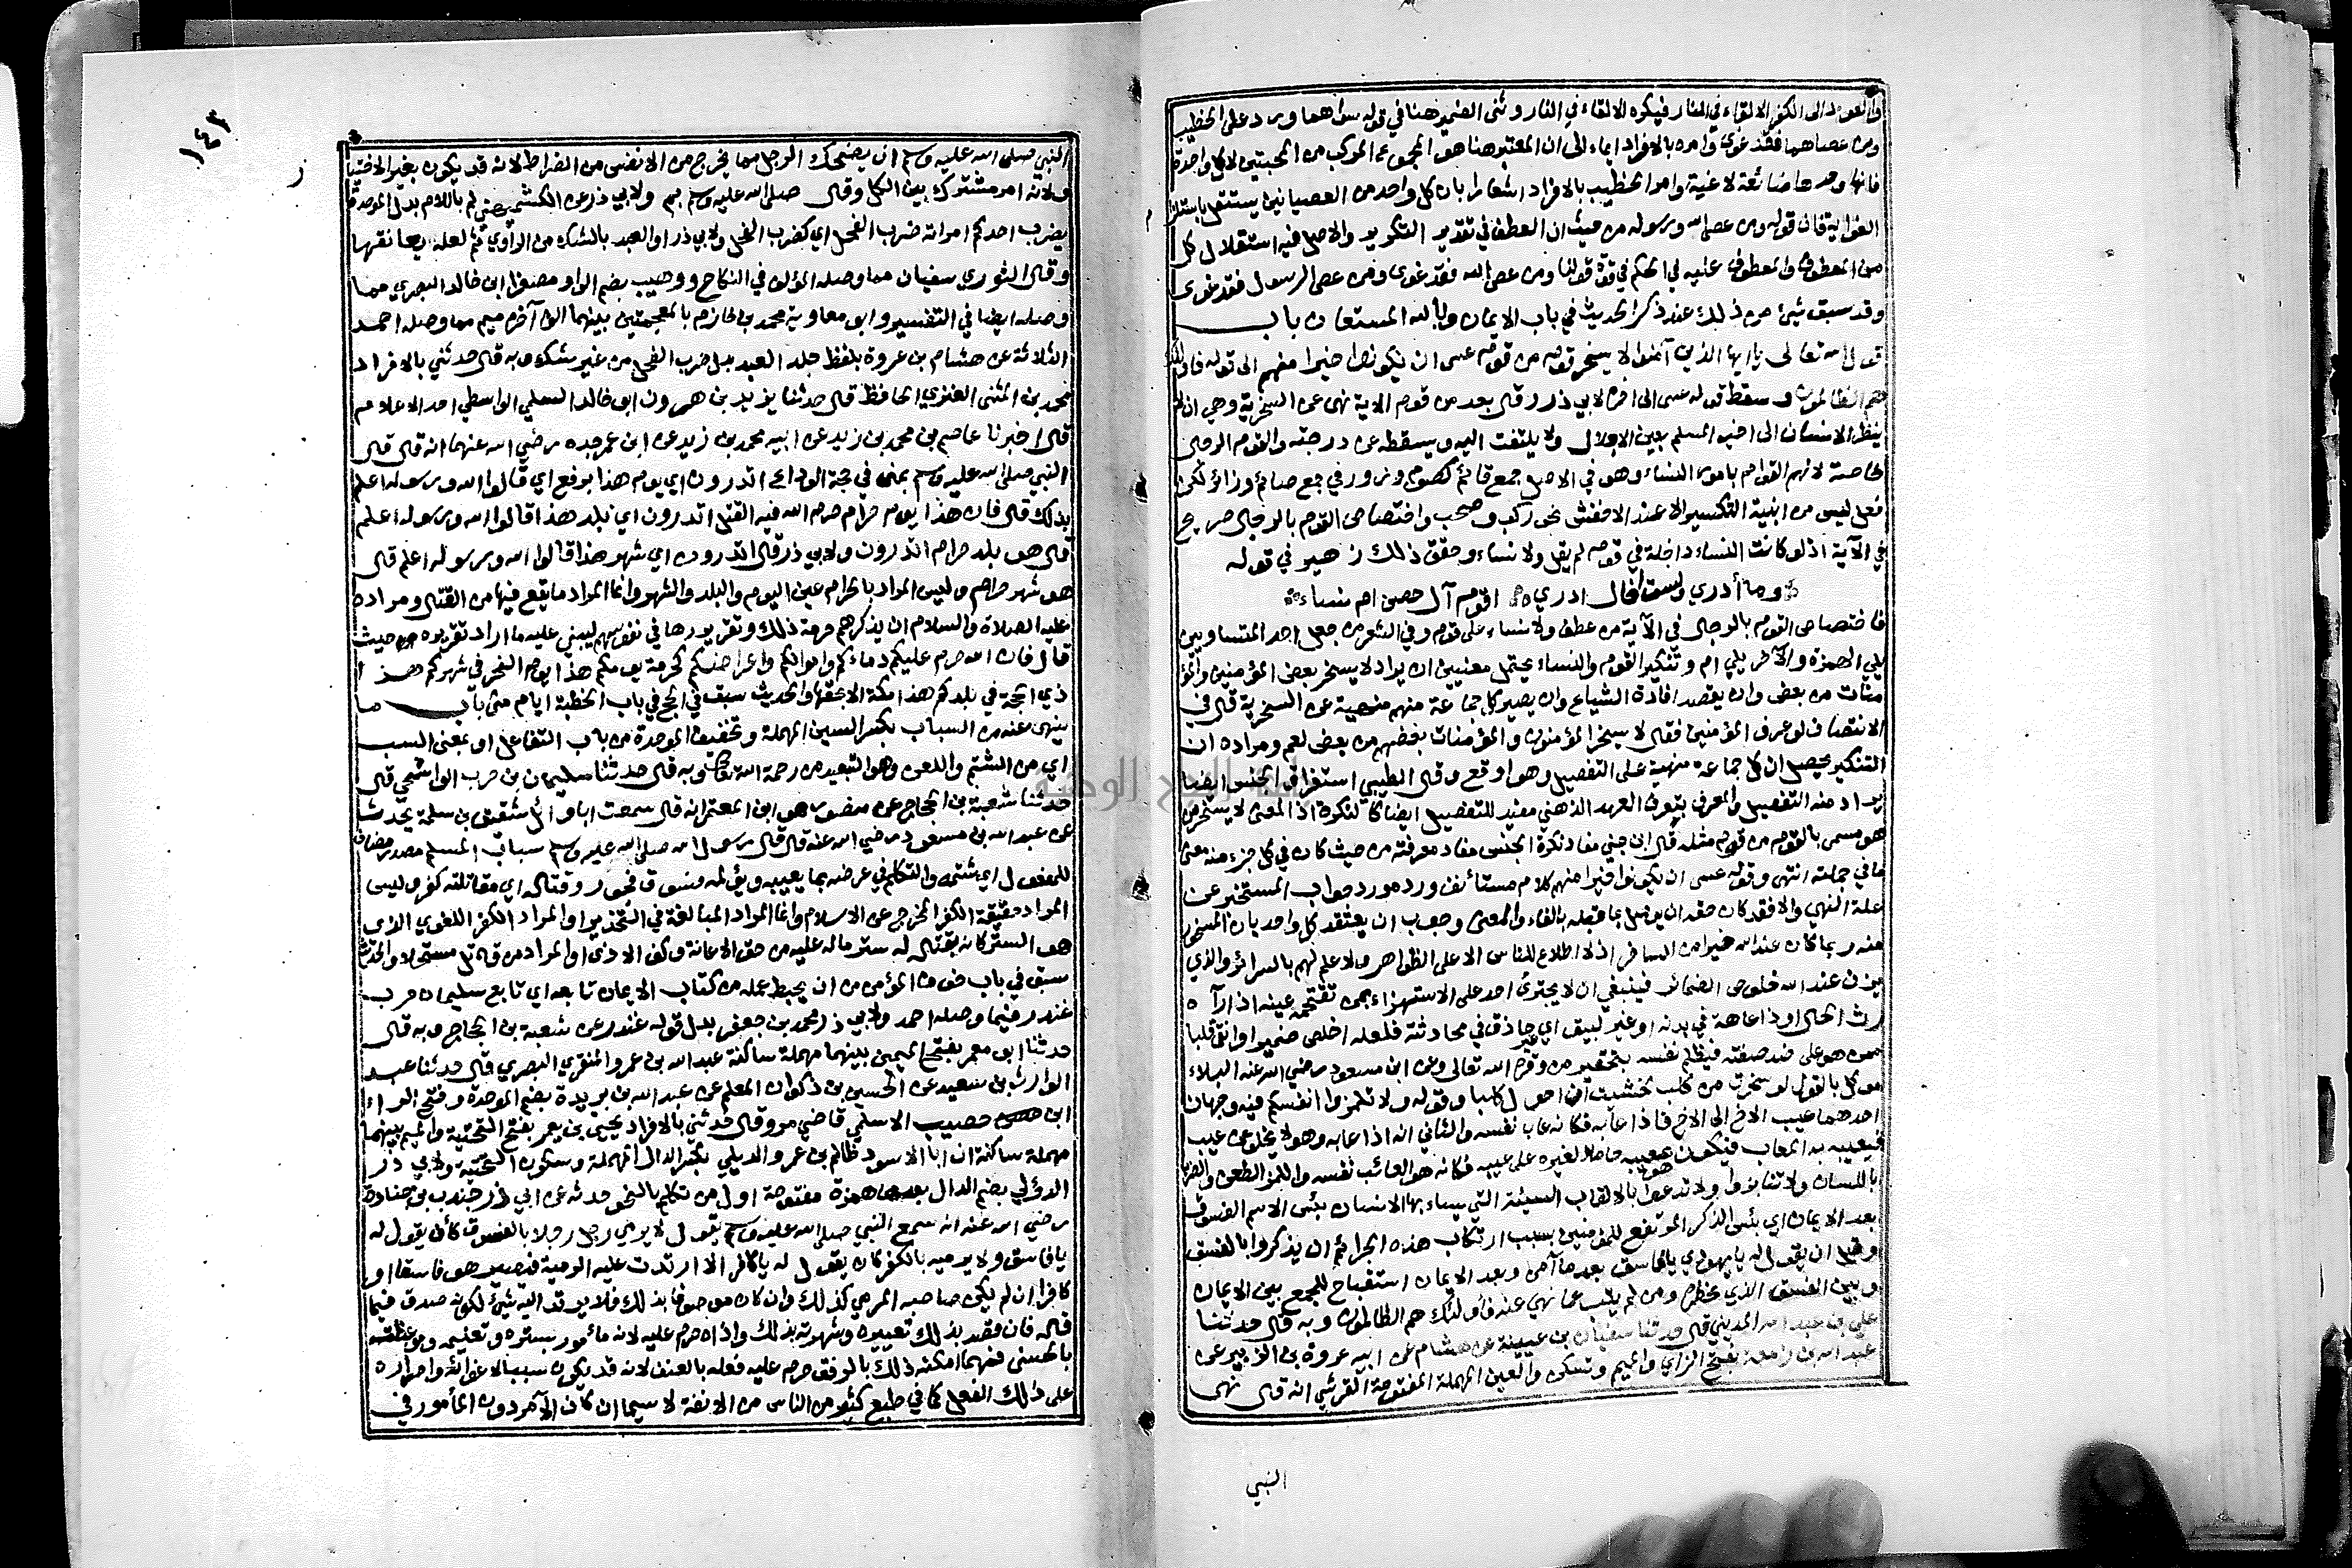 والعود الى الكفر الالقاء في النار فيكره الالقاء في النار وثنى الضمير هنا في قوله سواهما ورد على الخطيب
ومن عصاهما فقد غوى وامره بالافراد ايماء الى ان المعتبر هنا هو المجموع المركب من المحبتين لا كل واحدة
فانها وحدها ضائعة لاغية وامر الخطيب بالافراد اشعارا بان كل واحد من العصيانين يستقل باستلزام
الغواية فان قوله ومن عصى الله ورسوله من حيث ان العطف في تقدير التكرير والاصل فيه استقلال كل
من المعطوف والمعطوف عليه في الحكم في قوة قولنا ومن عصى الله فقد غوى ومن عصى الرسول فقد غوى
وقد سبق شيء من ذلك عند ذكر الحديث في باب الايمان وبالله المستعان باب
قول الله تعالى يا ايها الذين آمنوا لا يسخر قوم من قوم عسى ان يكونوا خيرا منهم الى قوله فاولئك
هم الظالمون وسقط قوله عسى الى اخره لابي ذر وقال بعد من قوم الاية نهى عن السخرية وهي ان لا
ينظر الانسان الى اخيه المسلم بعين الاجلال ولا يلتفت اليه ويسقطه عن درجته والقوم الرجال
خاصة لانهم القوام بامور النساء وهو في الاصل جمع قائم كصوم وزور في جمع صائم وزائر لكن
فعل ليس من ابنية التكسير الا عند الاخفش نحو ركب وصحب واختصاص القوم بالرجال صريح
في الآية اذ لو كانت النساء داخلة في قوم لم يقل ولا نساء وحقق ذلك زهير في قوله
وما أدري ولست اخال ادري اقوم آل حصن ام نساء
فاختصاص القوم بالرجال في الآية من عطف ولا نساء على قوم وفي الشعر من جعل احد المتساويين
يلي الهمزة والآخر يلي ام وتنكير القوم والنساء يحتمل معنيين ان يراد لا يسخر بعض المؤمنين والمؤ
منات من بعض وان يقصد افادة الشياع وان يصير كل جماعة منهم منهية عن السخرية قال في
الانتصاف لو عرف المؤمنين فقال لا يسخر المؤمنون والمؤمنات بعضهم من بعض لعم ومراده ان
التنكير يحصل ان كل جماعة منهية على التفصيل وهو اوقع وقال الطيبي استغراق الجنس ايضا
يراد منه التفصيل والمعرف بتعريف العهد الذهني مفيد للتفصيل ايضا كالنكرة اذ المعنى لا يسخر من
هو مسمى بالقوم من قوم مثله قال ابن جني مفاد نكرة الجنس مفاد معرفته من حيث كان في كل جزء منه معنى
ما في جملته انتهى وقوله عسى ان يكونوا خيرا منهم كلام مستأنف ورد مورد جواب المستخبر عن
علة النهي والا فقد كان حقه ان يوصل بما قبله بالفاء والمعنى وجوب ان يعتقد كل واحد بان المسخور
منه ربما كان عند الله خيرا من الساخر اذ لا اطلاع للناس الا على الظواهر ولا علم لهم بالسرائر والذي
يزن عند الله خلوص الضمائر فينبغي ان لا يجترئ احد على الاستهزاء بمن تقتحمه عينه اذا رآه
رث الحال او ذا عاهة في بدنه او غير لبيق اي غير حاذق في محادثته فلعله اخلص ضميرا وانقى قلبا
ممن هو على ضد صفته فيظلم نفسه بتحقير من وقره الله تعالى وعن ابن مسعود رضي الله عنه البلاء
موكل بالقول لو سخرت من كلب لخشيت ان احول كلبا وقوله ولا تلمزوا انفسكم فيه وجهان
احدهما عيب الاخ الى الاخ فاذا عابه فكانه عاب نفسه والثاني انه اذا عابه وهو لا يخلو عن عيب
فيعيبه به المعاب فيكون هو بعيبه حاملا لغيره على عيبه فكانه هو العائب نفسه واللمز الطعن والضرب
باللسان ولا تنابزوا ولا تدعوا بالالقاب السيئة التي يساء بها الانسان بئس الاسم الفسوق
بعد الايمان اي بئس الذكر المرتفع للمؤمنين بسبب ارتكاب هذه الجرائم ان يذكروا بالفسق
وقيل ان يقول له يا يهودي يا فاسق بعد ما آمن وبعد الايمان استقباح للجمع بين الايمان
وبين الفسق الذي يحظره ومن لم يتب عما نهي عنه فأولئك هم الظالمون وبه قال حدثنا
علي بن عبد الله المديني قال حدثنا سفيان بن عيينة عن هشام عن ابيه عروة بن الزبير عن
عبد الله بن زمعة بفتح الزاي والميم وتسكن والعين المهملة المفتوحة القرشي انه قال نهى
النبي
١٤٣
النبي صلى الله عليه وسلم ان يضحك الرجل مما يخرج من الانفس من الضراط لانه قد يكون بغير الاختيار
ولانه امر مشترك بين الكل وقال صلى الله عليه وسلم بم ولابي ذر عن الكشميهني لم باللام بدل الموحدة
يضرب احدكم امراته ضرب الفحل اي كضرب الفحل ولابي ذر او العبد بالشك من الراوي ثم لعله يعانقها
وقال الثوري سفيان مما وصله المؤلف في النكاح ووهيب بضم الواو مصغرا ابن خالد البصري مما
وصله ايضا في التفسير وابو معاوية محمد بن خازم بالمعجمتين بينهما الف آخره ميم مما وصله احمد
الثلاثة عن هشام بن عروة بلفظ جلد العبد بدل ضرب الفحل من غير شك وبه قال حدثني بالافراد
محمد بن المثنى العنزي الحافظ قال حدثنا يزيد بن هرون ابو خالد السلمي الواسطي احد الاعلام
قال اخبرنا عاصم بن محمد بن زيد عن ابيه محمد بن زيد عن ابن عمر جده رضي الله عنهما انه قال قال
النبي صلى الله عليه وسلم بمنى في حجة الوداع اتدرون اي يوم هذا برفع اي قالوا الله ورسوله اعلم
بذلك قال فان هذا يوم حرام حرم الله فيه القتل اتدرون اي بلد هذا قالوا الله ورسوله اعلم
قال هو بلد حرام اتدرون ولابي ذر قال اتدرون اي شهر هذا قالوا الله ورسوله اعلم قال
هو شهر حرام وليس المراد بالحرام عين اليوم والبلد والشهر وانما المراد ما يقع فيها من القتال ومراده
عليه الصلاة والسلام ان يذكرهم حرمة ذلك وتقريرها في نفوسهم ليبني عليه ما اراد تقريره من حيث
قال فان الله حرم عليكم دماءكم واموالكم واعراضكم كحرمة يومكم هذا يوم النحر في شهركم هذا
ذي الحجة في بلدكم هذا مكة الا بحقها والحديث سبق في الحج في باب الخطبة ايام منى باب ما
ينهى عنه من السباب بكسر السين المهملة وتخفيف الموحدة من باب التفاعل او بمعنى السب
اي من الشتم واللعن وهو التبعيد من رحمة الله تعالى وبه قال حدثنا سليمان بن حرب الواشحي قال
حدثنا شعبة بن الحجاج عن منصور هو ابن المعتمر انه قال سمعت ابا وائل شقيق بن سلمة يحدث
عن عبد الله بن مسعود رضي الله عنه قال قال رسول الله صلى الله عليه وسلم سباب المسلم مصدر مضاف
للمفعول اي شتمه والتكلم في عرضه بما يعيبه ويؤلمه فسوق فجور وقتاله اي مقاتلته كفر وليس
المراد حقيقة الكفر المخرج عن الاسلام وانما المراد المبالغة في التحذير او المراد الكفر اللغوي الذي
هو الستر كانه بقتاله له ستر ماله عليه من حق الاعانة وكف الاذى او المراد من قاتل مستحلا والحديث
سبق في باب خوف المؤمن من ان يحبط عمله من كتاب الايمان تابعه اي تابع سليمان حرب
غندر فيما وصله احمد ولابي ذر محمد بن جعفر بدل قوله غندر عن شعبة بن الحجاج وبه قال
حدثنا ابو معمر بفتح الميمين بينهما مهملة ساكنة عبد الله بن عمرو المنقري البصري قال حدثنا عبد
الوارث بن سعيد عن الحسين بن ذكوان المعلم عن عبد الله بن بريدة بضم الموحدة وفتح الراء
ابن حصيب الاسلمي قاضي مرو قال حدثني بالافراد يحيى بن يعمر بفتح التحتية والميم بينهما
مهملة ساكنة ان ابا الاسود ظالم بن عمرو الديلي بكسر الدال المهملة وسكون التحتية ولابي ذر
الدؤلي بضم الدال بعدها همزة مفتوحة اول من تكلم بالنحو حدثه عن ابي ذر جندب بن جنادة
رضي الله عنه انه سمع النبي صلى الله عليه وسلم يقول لا يرمي رجل رجلا بالفسوق كأن يقول له
يا فاسق ولا يرميه بالكفر كان يقول له يا كافر الا ارتدت عليه الرمية فيصير هو فاسقا او
كافرا ان لم يكن صاحبه المرمي كذلك وان كان موصوفا بذلك فلا يرتد اليه شيء لكونه صدق فيما
قاله فان قصد بذلك تعييره وشهرته بذلك واذاه حرم عليه لانه مأمور بستره وتعليمه وموعظته
بالحسنى فمهما امكنه ذلك بالرفق حرم عليه فعله بالعنف لانه قد يكون سببا لاغرائه واصراره
على ذلك الفعل كما في طبع كثير من الناس من الانفة لا سيما ان كان الآمر دون المأمور في